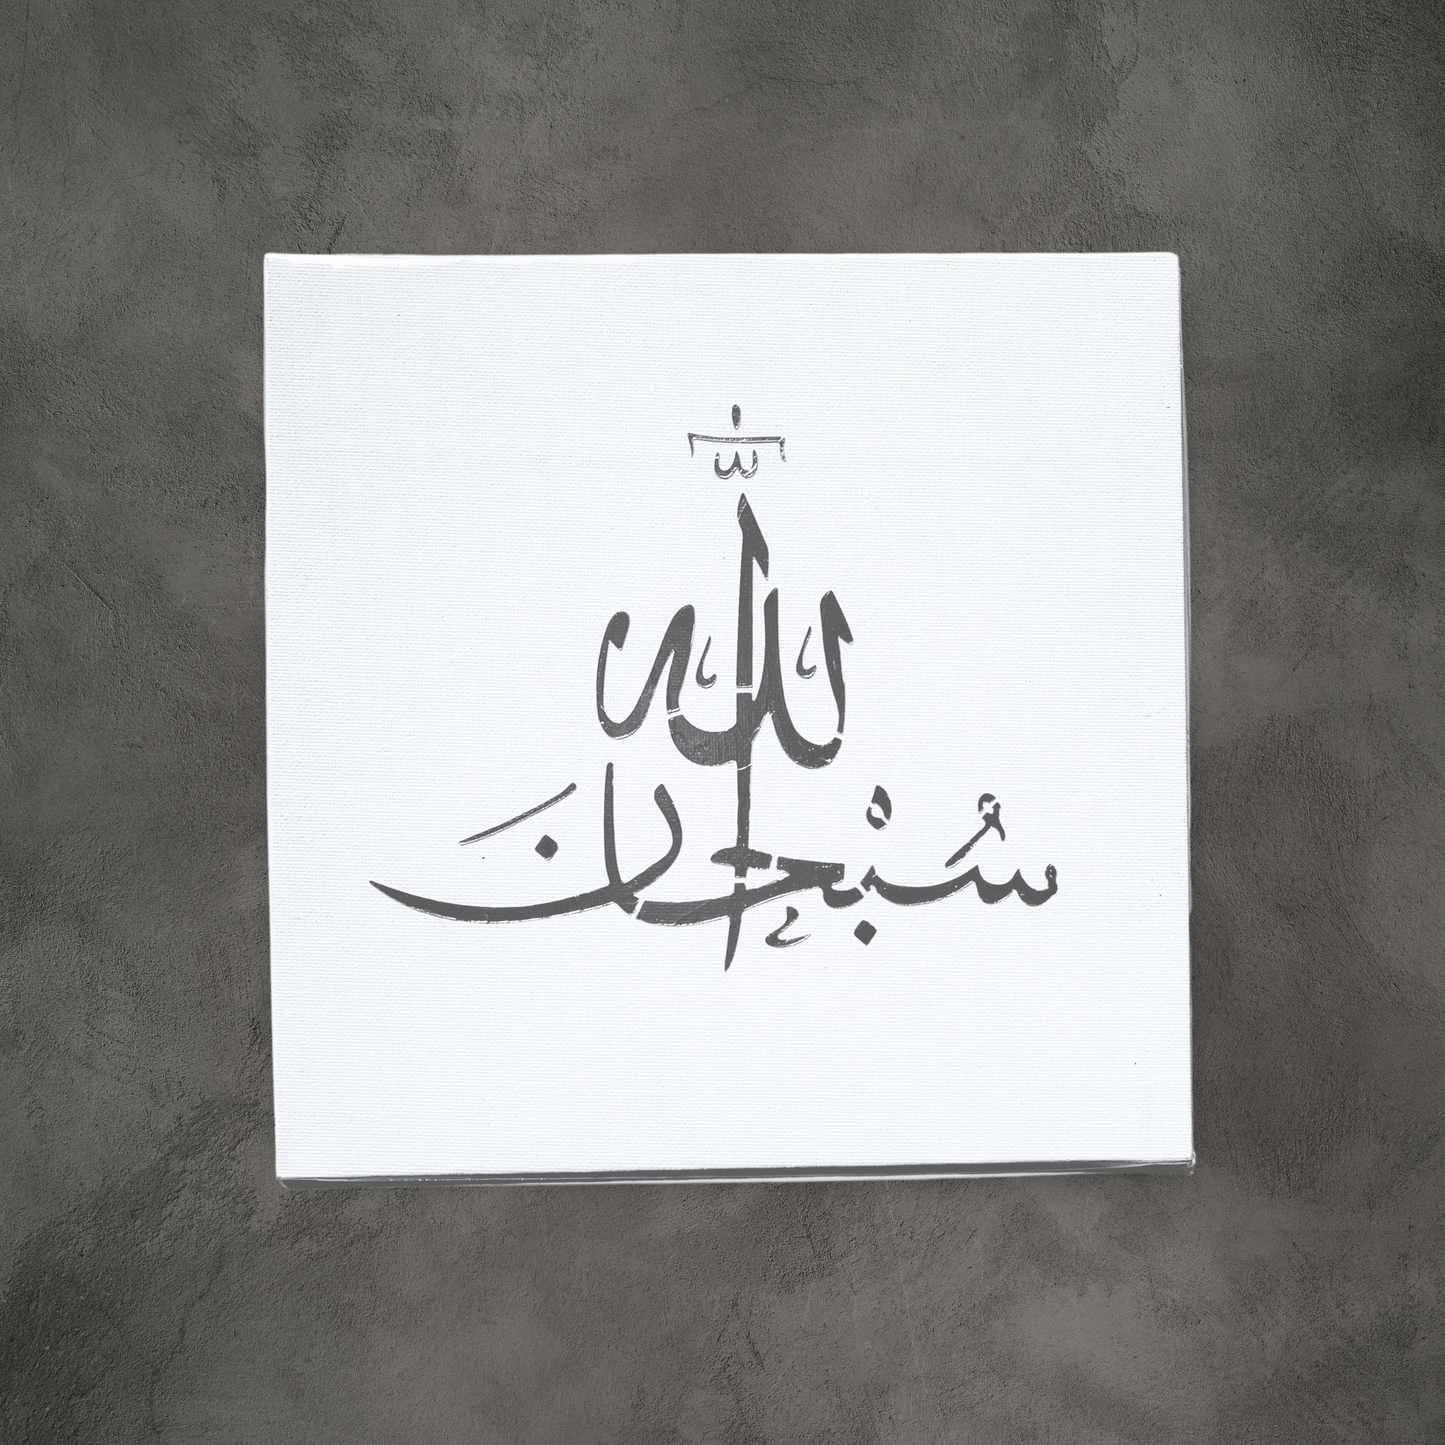 سُبْحَانَ
اللّٰه